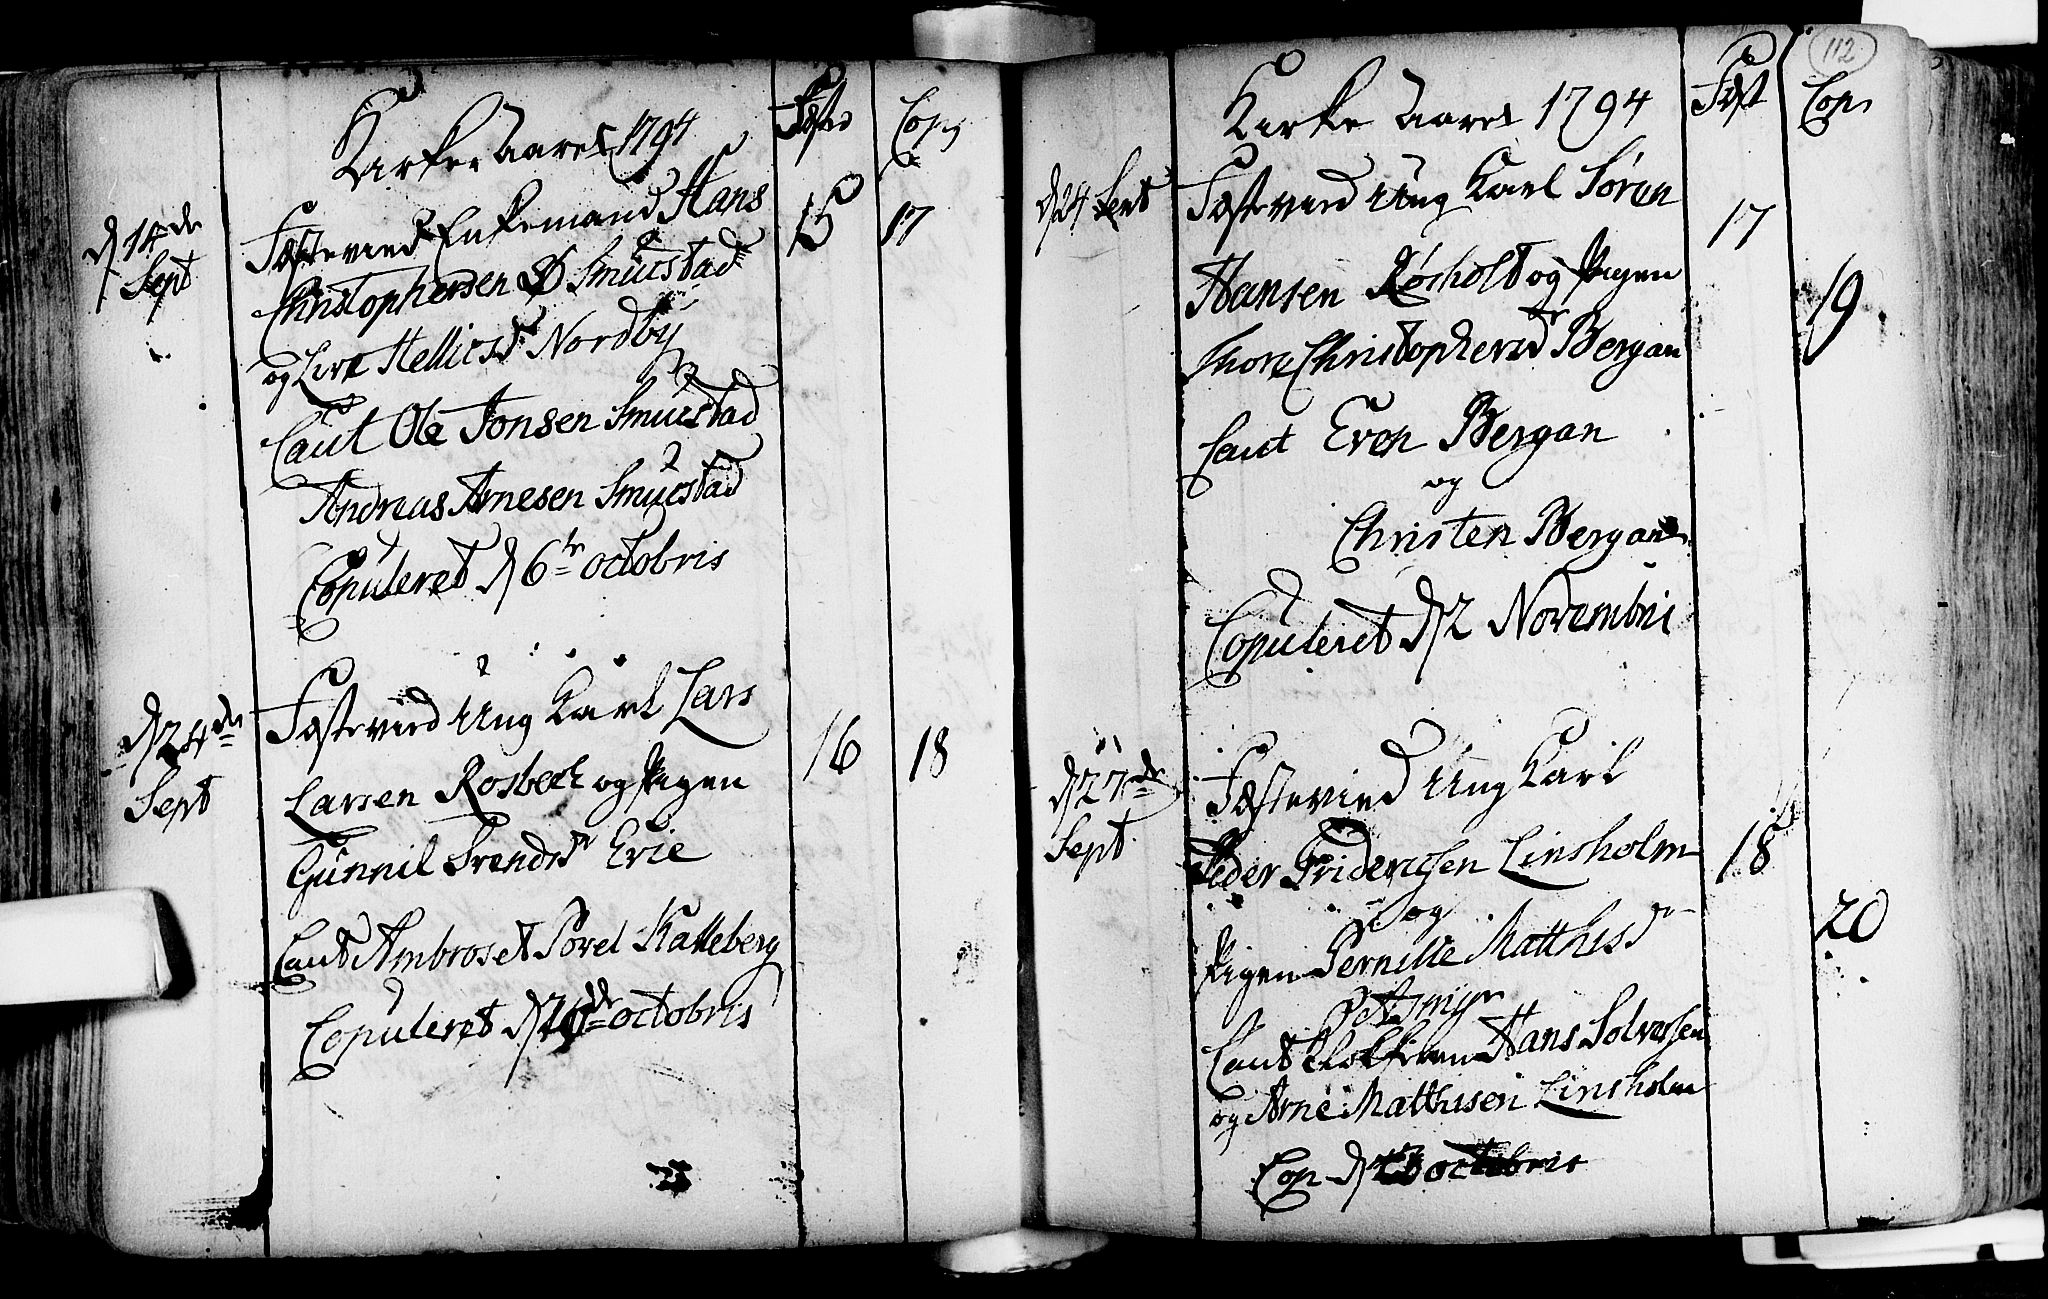 Kirke Aaret 1794
Fæst Cop
d 14de Sept
Fæstevied Enkemand Hans 15 17
Christophersen Smuestad
og Live Hellies dr Nordby
Caut Ole Jonsen Smuestad
Andreas Arnesen Smuestad
Copuleret d 6te octobris
d 24de Sept
Fæstevied Ung Karl Lars
Larsen Rosbech og Pigen 16 18
Gunnil Svends dr Evie
Caut Ambros et Povel Kalleberg
Copuleret d octobris
112
Kirke Aaret 1794
Fæst Cop
d 24 Sept
Fæstevied Ung Karl Søren 17
Hansen Røsholt og Pigen
Thore Christophersdr Bergan 19
Caut Even Bergan
og
Christen Bergan
Copuleret d 2 Novembri
d 27de Sept
Fæstevied Ung Karl
Peder Fridericsen Linsholm 18
og
Pigen Pernille Matthisdr 20
Caut Hans Solversen
og Arne Matthisen Linsholm
Cop d octobris